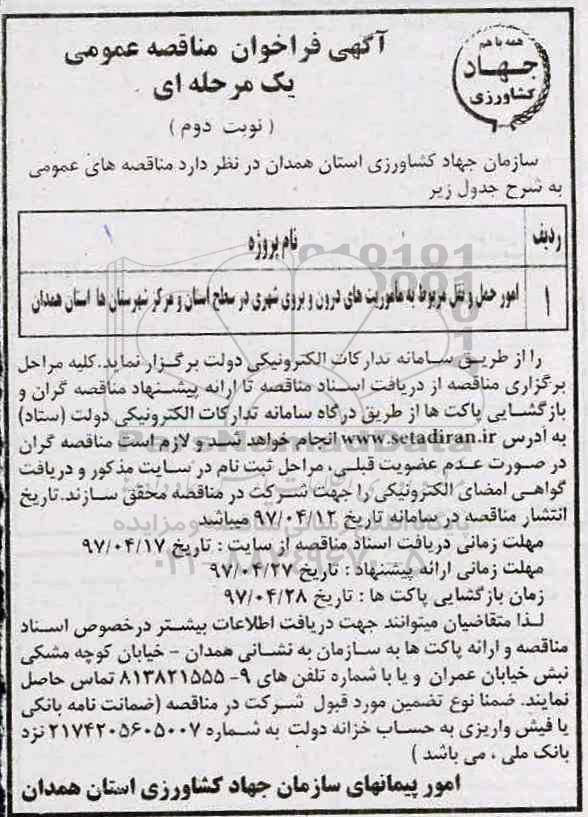 همه با هم
جهاد
کشاورزی
آگهی فراخوان مناقصه عمومی
یک مرحله ای
( نوبت دوم )
سازمان جهاد کشاورزی استان همدان در نظر دارد مناقصه های عمومی
به شرح جدول زیر
ردیف
نام پروژه
۱
امور حمل و نقل مربوط به ماموریت های درون و بروی شهری در سطح استان و مرکز شهرستان ها استان همدان
را از طریق سامانه تدارکات الکترونیکی دولت برگزار نماید. کلیه مراحل
برگزاری مناقصه از دریافت اسناد مناقصه تا ارائه پیشنهاد مناقصه گران و
بازگشایی پاکت ها از طریق درگاه سامانه تدارکات الکترونیکی دولت (ستاد)
به آدرس www.setadiran.ir انجام خواهد شد و لازم است مناقصه گران
در صورت عدم عضویت قبلی، مراحل ثبت نام در سایت مذکور و دریافت
گواهی امضای الکترونیکی را جهت شرکت در مناقصه محقق سازند. تاریخ
انتشار مناقصه در سامانه تاریخ ۹۷/۰۴/۱۲ میباشد
مهلت زمانی دریافت اسناد مناقصه از سایت : تاریخ ۹۷/۰۴/۱۷
مهلت زمانی ارائه پیشنهاد : تاریخ ۹۷/۰۴/۲۷
زمان بازگشایی پاکت ها : تاریخ ۹۷/۰۴/۲۸
لذا متقاضیان میتوانند جهت دریافت اطلاعات بیشتر درخصوص اسناد
مناقصه و ارائه پاکت ها به سازمان به نشانی همدان - خیابان کوچه مشکی
نبش خیابان عمران و یا با شماره تلفن های ۹- ۸۱۳۸۲۱۵۵۵ تماس حاصل
نمایند. ضمنا نوع تضمین مورد قبول شرکت در مناقصه (ضمانت نامه بانکی
یا فیش واریزی به حساب خزانه دولت به شماره ۲۱۷۴۲۰۵۶۰۵۰۰۷ نزد
بانک ملی ، می باشد )
امور پیمانهای سازمان جهاد کشاورزی استان همدان
ParsNamadData